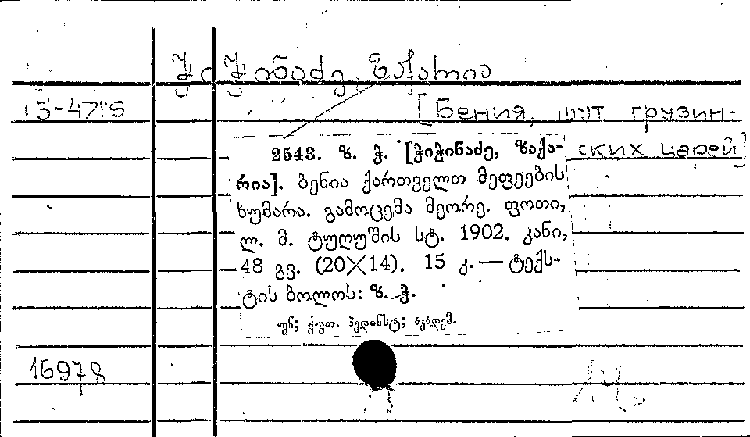 ჭიჭინაძე, ზაქარია
[Бения, шут грузин-
ских царей]
2543. ზ. ჭ. [ჭიჭინაძე, ზაქა-
რია]. ბენია ქართველთ მეფეების
ხუმარა. გამოცემა მეორე. ფოთი,
ლ. მ. ტუღუშის სტ. 1902. კანი,
48 გვ. (20×14). 15 კ. — ტექს-
ტის ბოლოს: ზ. ჭ.
16978